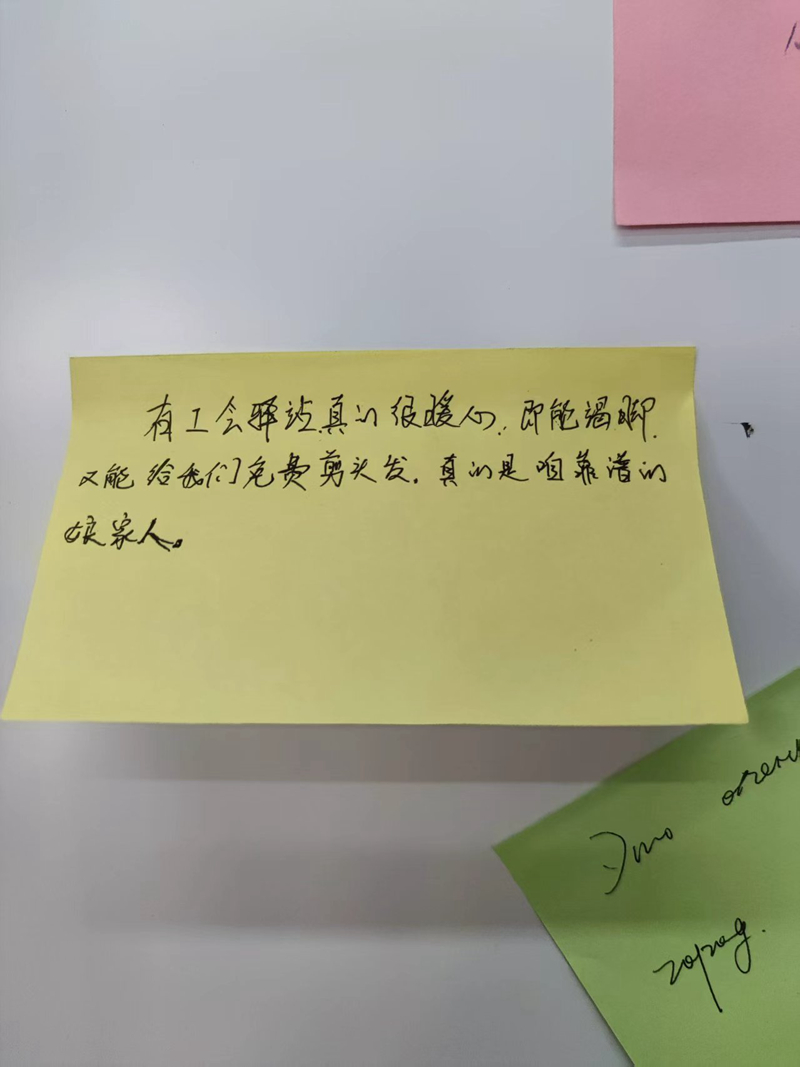 有工会驿站真的很暖心,即能歇脚,
又能给我们免费剪头发.真的是咱靠谱的
娘家人。
Это
город.